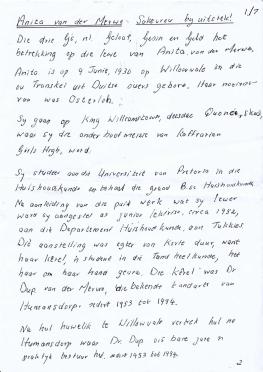 1/7
Anita van der Merwe - Sakevrou by uitstek!
Die drie G's, nl. Geloof, Gesin en Geld het
betrekking op die lewe van Anita van der Merwe.
Anita is op 9 Junie, 1930 op Willowvale in die
ou Transkei uit Duitse ouers gebore. Haar nooiens-
van was Osterloh.
Sy gaan op King Williamstown, deesdae Qonce, skool,
waar sy die onderhoof meisie van Kaffrarian
Girls High, word.
Sy studeer aan die Universiteit van Pretoria in die
Huishoudkunde en behaal die graad B.Sc Huishoudkunde.
Na aanleiding van die puik werk wat sy lewer
word sy aangestel as junior lektrise, circa 1952,
aan die Departement Huishoudkunde, aan Tukkies.
Die aanstelling was egter van korte duur, want
haar kêrel, 'n student in die Tandheelkunde, het
haar om haar hand gevra. Die kêrel was Dr
Dup van der Merwe, die bekende tandarts van
Humansdorp sedert 1953 tot 1994.
Na hul huwelik te Willowvale vertrek hul na
Humansdorp waar Dr. Dup sis bare jare 'n
praktyk bestuur het. 1953 tot 1994.
2